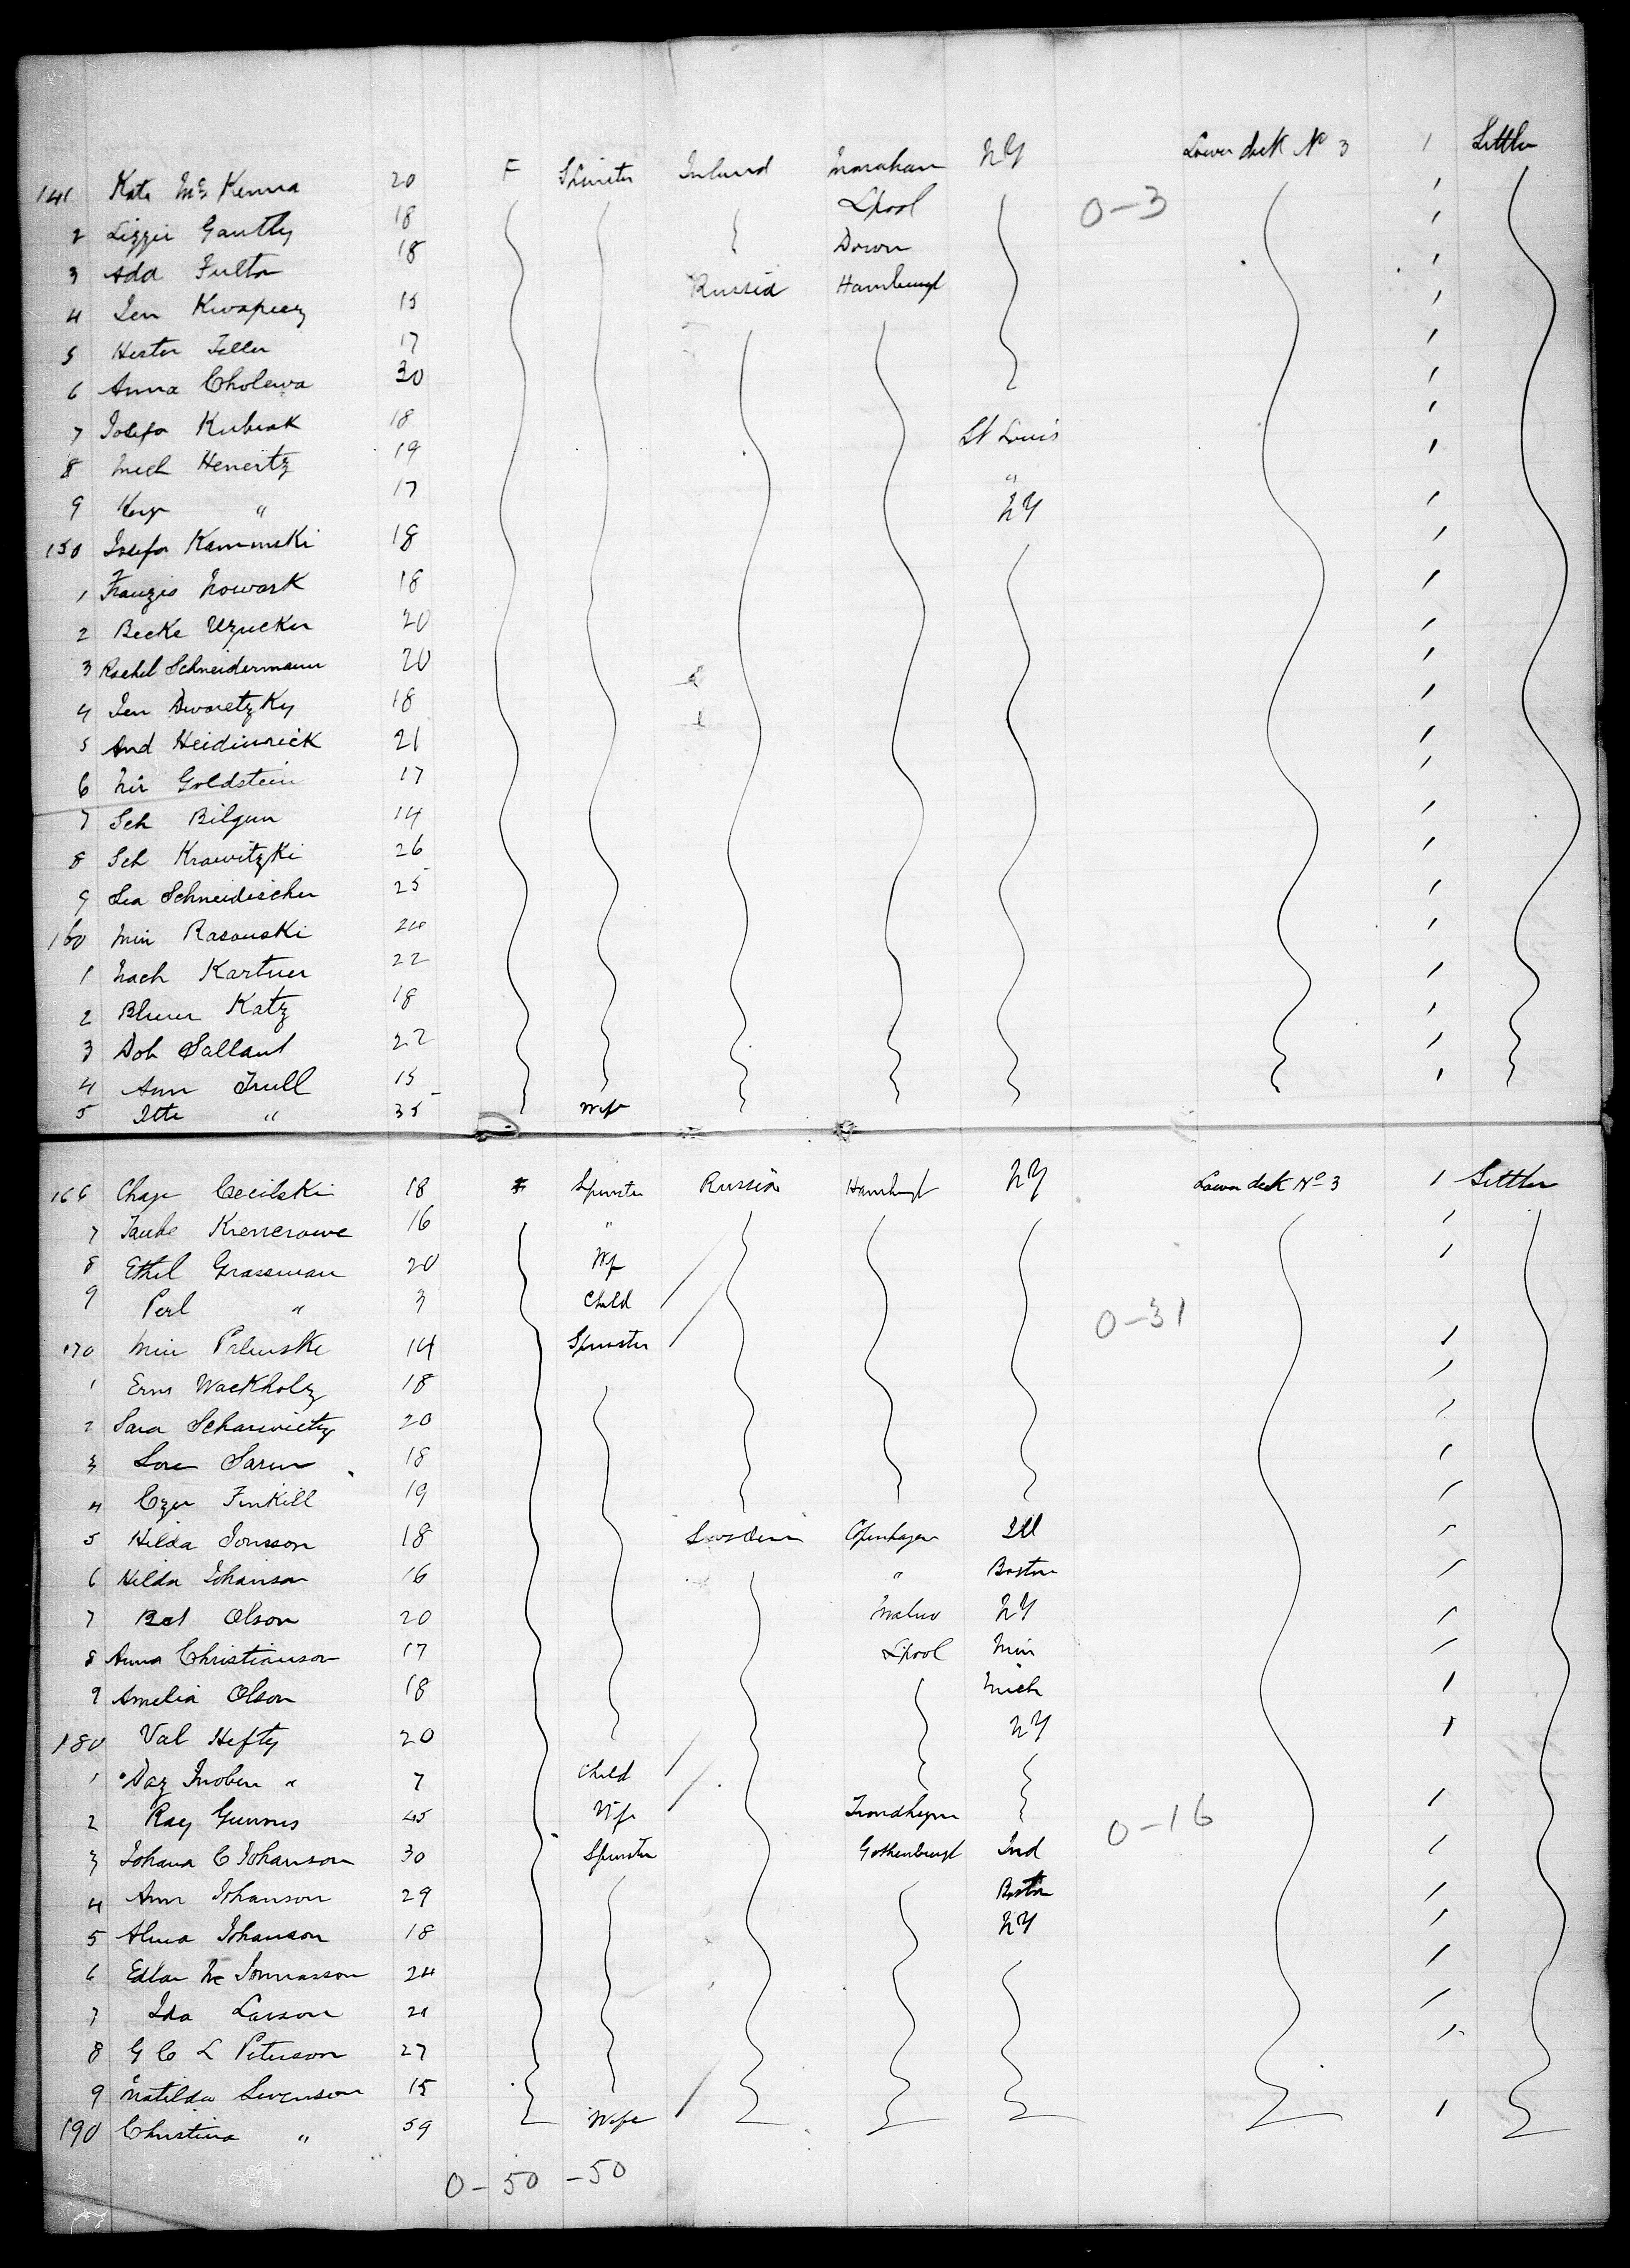 141 Kate McKenna 20 F Spinster Ireland Monahan NY Lower deck No 3 1 Settler
2 Lizzie Gantly 18 Lpool 0-3
3 Add Fulton 18 Down
4 Len Kwapiez 15 Russia Hamburgh
5 Hester Teller 17
6 Anna Cholewa 30
7 Josefa Kubiak 18 St Louis
8 Mich Henertz 19 "
9 " 17 NY
150 Josefa Kaminski 18
1 Franzis Nowark 18
2 Becke 20
3 Rachel Schneidermann 20
4 Jen Dworetzky 18
5 And 21
6 Mir Goldstein 17
7 Sch Bilgun 14
8 Sch Krawitzki 26
9 Lea Schneidischer 25
160 Min Rasouski 20
1 Nach Kartun 22
2 Blum Katz 18
3 Dob Sallant 22
4 Ann Trull 15
5 Itte " 35 Wife
166 Chaje Cecilski 18 F Spinster Russia Hamburgh NY Lower deck No 3 1 Settler
7 Taube 16 "
8 Ethel Grassman 20 Wife
9 Perl " 3 Child 0-31
170 Min 14 Spinster
1 Erns Wackholz 18
2 Sara Scharwietz 20
3 Sore 18
4 Finkill 19
5 Hilda Jonsson 18 Sweden Copenhagen Ill
6 Hilda Johanson 16 " Boston
7 Bet Olson 20 Malmo NY
8 Anna Christianson 17 Lpool Min
9 Amelia Olson 18 Mich
180 Val Hefty 20 NY
1 Dag " 7 Child
2 Ray Gunnes 45 Wife Trondhejm 0-16
3 Johana C Johanson 30 Spinster Gothenburgh Ind
4 Ann Johanson 29 Boston
5 Alma Johanson 18 NY
6 Edla Jonnasson 24
7 Ida Larson 21
8 G C L Peterson 27
9 Matilda Swenson 15
190 Christina " 59 Wife
0-50-50